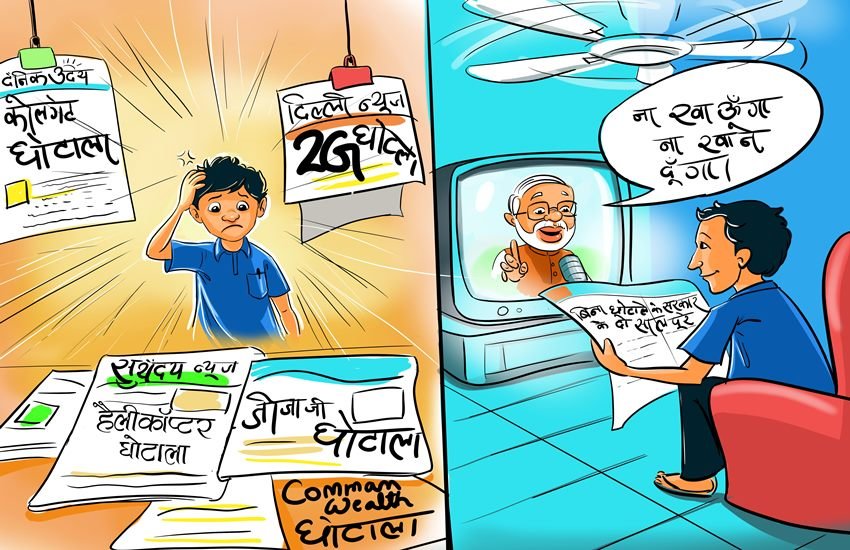 दैनिक उदय
कोलगेट
घोटाला
दिल्ली न्यूज
2G घोटाला
सुर्योदय न्यूज
हैलीकॉप्टर
घोटाला
जीजाजी
घोटाला
Comman
Wealth
घोटाला
ना खाऊँगा
ना खाने
दूँगा।
बिना घोटाले के सरकार
के दो साल पूरे